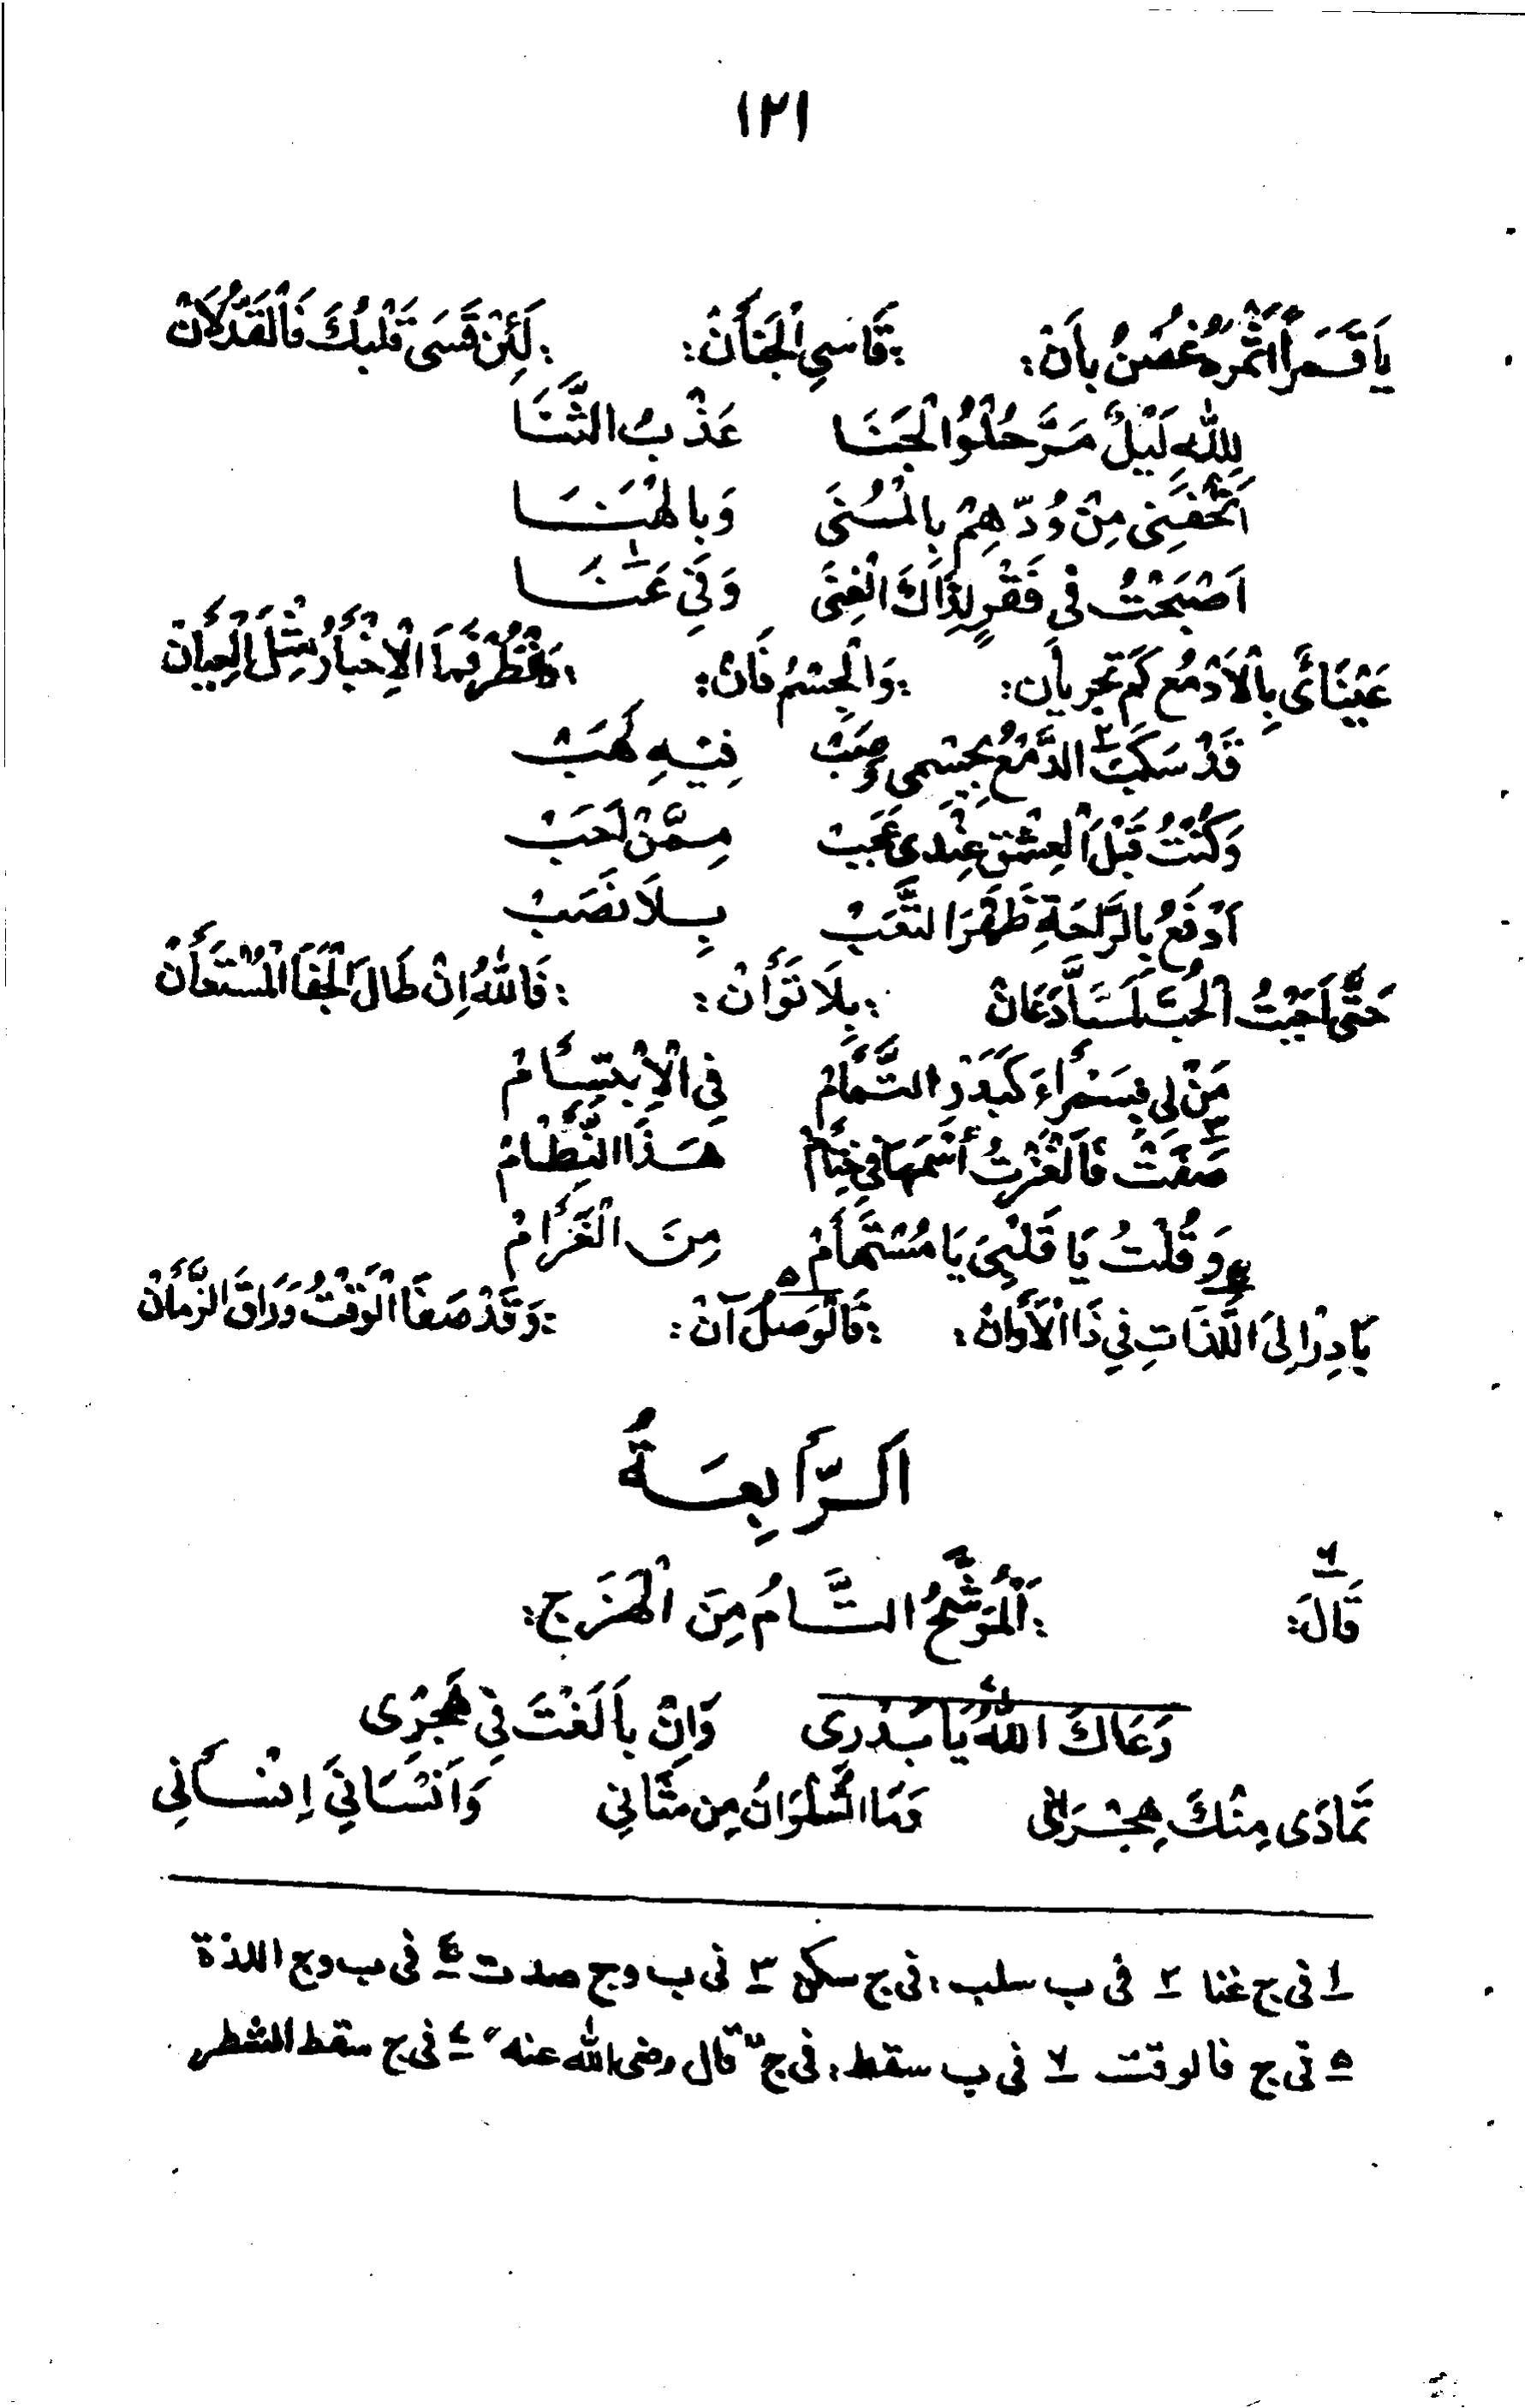 ١٢١
يَا قَمَراً أَثْمَرَهُ غُصْنُ بَانْ: :قَاسِي الْجَنَانْ: :لَئِنْ قَسَى قَلْبُكَ فَالْقَدُّ لَانْ
لِلّٰهِ لَيْلٌ مَرَّ حُلْوُ الْجَنَا عَذْبُ الثَّنَا
اَتْحَفَنِي مِنْ وُدِّهِمْ بِالْمُنَى وَبِالْهَنَا
اَصْبَحْتُ فِي فَقْرٍ لِذَاكَ الْغِنَى وَفِي عَنَا ١
عَيْنَايَ بِالْأَدْمُعِ كَمْ تَجْرِيَانْ: :وَالْجِسْمُ فَانْ: :فَانْظُرْ فَمَا الْاِخْبَارُ مِثْلَ الْعِيَانْ
قَدْ سَكَبَ ٢ الدَّمْعُ بِجِسْمِي وَصَبْ فِيْهِ لَهَبْ
وَكُنْتُ قَبْلَ الْعِشْقِ عِنْدِي عَجَبْ مِمَّنْ اَحَبْ
اَدْفَعُ بِالرَّاحَةِ ظَهْرَ التَّعَبْ بِلَا نَصَبْ
حَتَّى اَجَبْتُ الْحُبَّ لَمَّا دَعَانْ :بِلَا تَوَانْ: :فَاللّٰهُ اِنْ طَالَ الْجَفَا الْمُسْتَعَانْ
مَنْ لِي بِسَمْرَاءَ كَبَدْرِ التَّمَامْ فِي الْاِبْتِسَامْ
صَفَتْ ٣ فَاَلْغَزْتُ اسْمَهَا فِي خِتَامْ هَذَا النِّظَامْ
وَقُلْتُ يَا قَلْبِيَ يَا مُسْتَهَامْ مِنَ الْغَرَامْ
بَادِرْ اِلَى اللَّذَاتِ ٤ فِي ذَا الْأَوَانْ: :فَالْوَصْلُ ٥ آنْ: :وَقَدْ صَفَا الْوَقْتُ وَرَاقَ الزَّمَانْ
اَلرَّابِعَةُ
قَالَ: ٦ :اَلْمُوَشَّحُ التَّامُ مِنَ الْهَزَجِ:
رَعَاكَ اللّٰهُ يَا بَدْرِي وَاِنْ بَالَغْتَ فِي هَجْرِي
تَمَادَى مِنْكَ هِجْرَانِي وَمَا السُّلْوَانُ مِن شَانِي وَاَنْسَانِيَ اِنْسَانِي
١ فى ج غنا ٢ فى ب سلب، فى ج سكن ٣ فى ب وج صدت ٤ فى ب وج اللذة
٥ فى ج فالوقت ٦ فى ب سقط، فى ج "قال رضى الله عنه" ٧ فى ج سقط الشطر